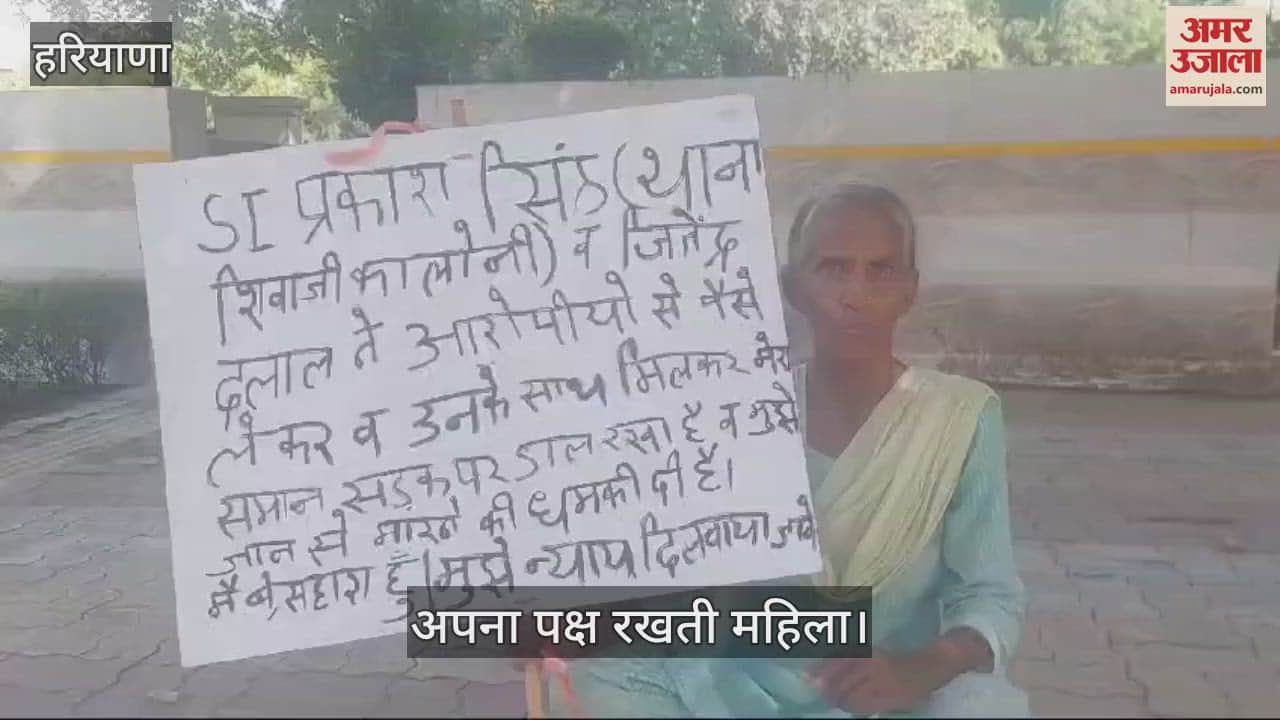 हरियाणा
अमर
उजाला
amarujala.com
SI प्रकाश सिंह (थाना
शिवाजी कालोनी) व जितेंद्र
दलाल ने आरोपीयो से पैसे
लेकर व उनके साथ मिलकर मेरा
समान सड़क पर डाल रखा है व मुझे
जान से मारने की धमकी दी है।
मै बेसहारा हूँ। मुझे न्याय दिलवाया जावे
अपना पक्ष रखती महिला।